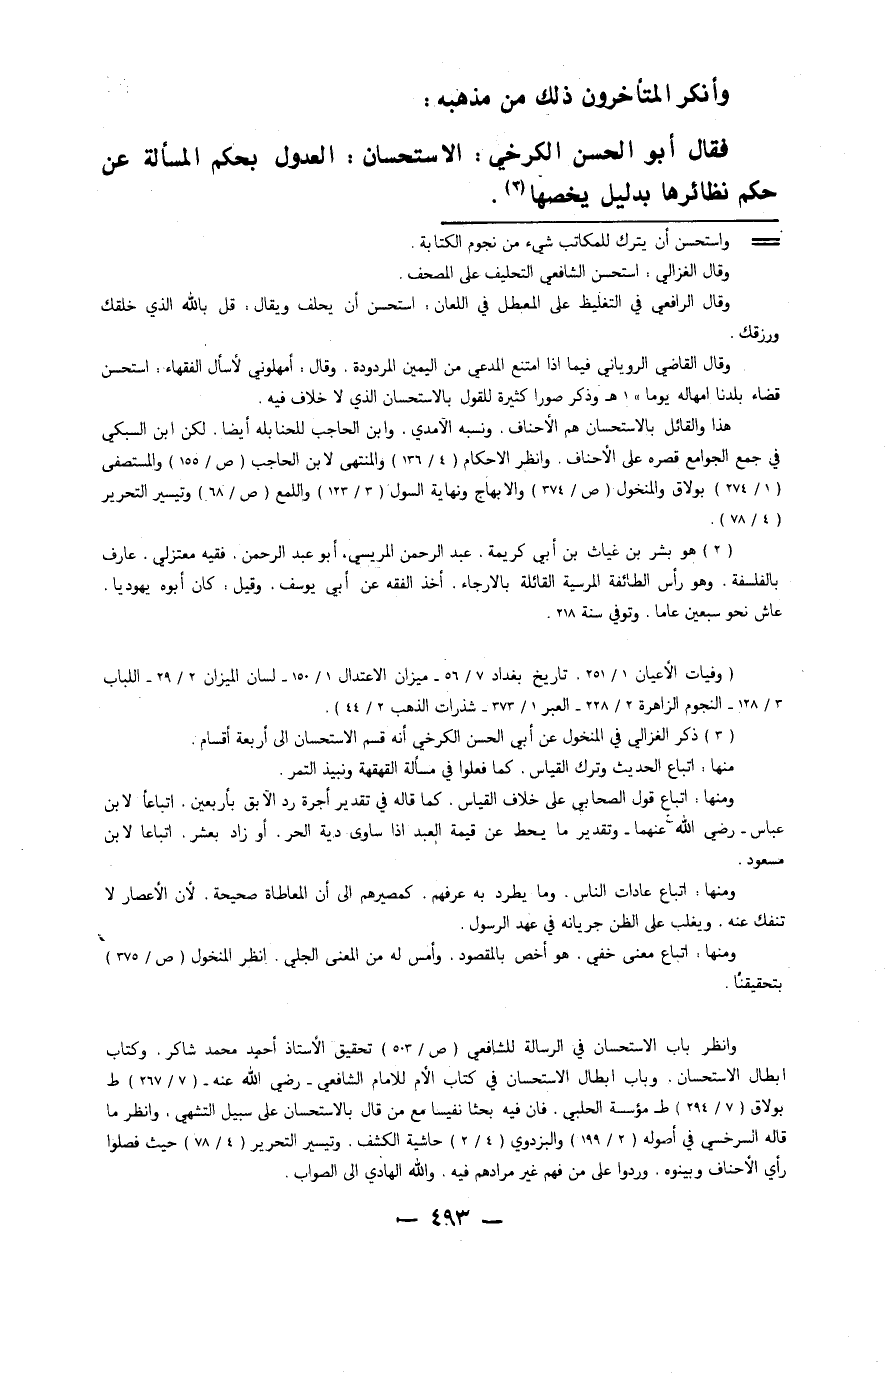 وأنكر المتأخرون ذلك من مذهبه :
فقال أبو الحسن الكرخي : الاستحسان : العدول بحكم المسألة عن
حكم نظائرها بدليل يخصها(٣) .
= واستحسن أن يترك للمكاتب شيء من نجوم الكتابة .
وقال الغزالي : استحسن الشافعي التحليف على المصحف .
وقال الرافعي في التغليظ على المعطل في اللعان : استحسن أن يحلف ويقال : قل بالله الذي خلقك
ورزقك .
وقال القاضي الروياني فيما اذا امتنع المدعي من اليمين المردودة . وقال : أمهلوني لأسأل الفقهاء : استحسن
قضاء بلدنا امهاله يوما » ١ هـ وذكر صورا كثيرة للقول بالاستحسان الذي لا خلاف فيه .
هذا والقائل بالاستحسان هم الأحناف . ونسبه الآمدي . وابن الحاجب للحنابله أيضا . لكن ابن السبكي
في جمع الجوامع قصره على الأحناف . وانظر الاحكام ( ٤ / ١٣٦ ) والمنتهى لابن الحاجب ( ص / ١٥٥ ) والمستصفى
( ١ / ٢٧٤ ) بولاق والمنخول ( ص / ٣٧٤ ) والابهاج ونهاية السول ( ٣ / ١٢٣ ) واللمع ( ص / ٦٨ ) وتيسير التحرير
( ٤ / ٧٨ ) .
( ٢ ) هو بشر بن غياث بن أبي كريمة . عبد الرحمن المريسي، أبو عبد الرحمن . فقيه معتزلي . عارف
بالفلسفة . وهو رأس الطائفة المرسية القائلة بالارجاء . أخذ الفقه عن أبي يوسف . وقيل : كان أبوه يهوديا .
عاش نحو سبعين عاما . وتوفي سنة ٢١٨ .
( وفيات الأعيان ١ / ٢٥١ . تاريخ بغداد ٧ / ٥٦ ـ ميزان الاعتدال ١ / ١٥٠ ـ لسان الميزان ٢ / ٢٩ ـ اللباب
٣ / ١٢٨ ـ النجوم الزاهرة ٢ / ٢٢٨ ـ العبر ١ / ٣٧٣ ـ شذرات الذهب ٢ / ٤٤ ) .
( ٣ ) ذكر الغزالي في المنخول عن أبي الحسن الكرخي أنه قسم الاستحسان الى أربعة أقسام .
منها : اتباع الحديث وترك القياس . كما فعلوا في مسألة القهقهة ونبيذ التمر .
ومنها : اتباع قول الصحابي على خلاف القياس . كما قاله في تقدير أجرة رد الآبق بأربعين . اتباعاً لابن
عباس ـ رضي الله عنهما ـ وتقدير ما يحط عن قيمة العبد اذا ساوى دية الحر . أو زاد بعشر . اتباعا لابن
مسعود .
ومنها : اتباع عادات الناس . وما يطرد به عرفهم . كمصيرهم الى أن المعاطاة صحيحة . لأن الأعصار لا
تنفك عنه . ويغلب على الظن جريانه في عهد الرسول .
ومنها : اتباع معنى خفي . هو أخص بالمقصود . وأمس له من المعنى الجلي . انظر المنخول ( ص / ٣٧٥ )
بتحقيقنا .
وانظر باب الاستحسان في الرسالة للشافعي ( ص / ٥٠٣ ) تحقيق الأستاذ أحمد محمد شاكر . وكتاب
ابطال الاستحسان . وباب ابطال الاستحسان في كتاب الأم للامام الشافعي ـ رضي الله عنه ـ ( ٧ / ٢٦٧ ) ط
بولاق ( ٧ / ٢٩٤ ) طـ مؤسسة الحلبي . فان فيه بحثا نفيسا مع من قال بالاستحسان على سبيل التشهي . وانظر ما
قاله السرخسي في أصوله ( ٢ / ١٩٩ ) والبزدوي ( ٤ / ٢ ) حاشية الكشف . وتيسير التحرير ( ٤ / ٧٨ ) حيث فصلوا
رأي الأحناف وبينوه . وردوا على من فهم غير مرادهم فيه . والله الهادي الى الصواب .
— ٤٩٣ —